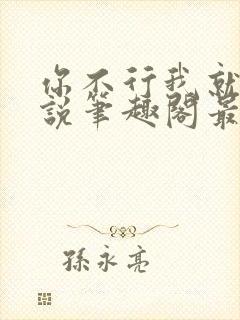 你不行我就
說筆趣閣最
孫永亮